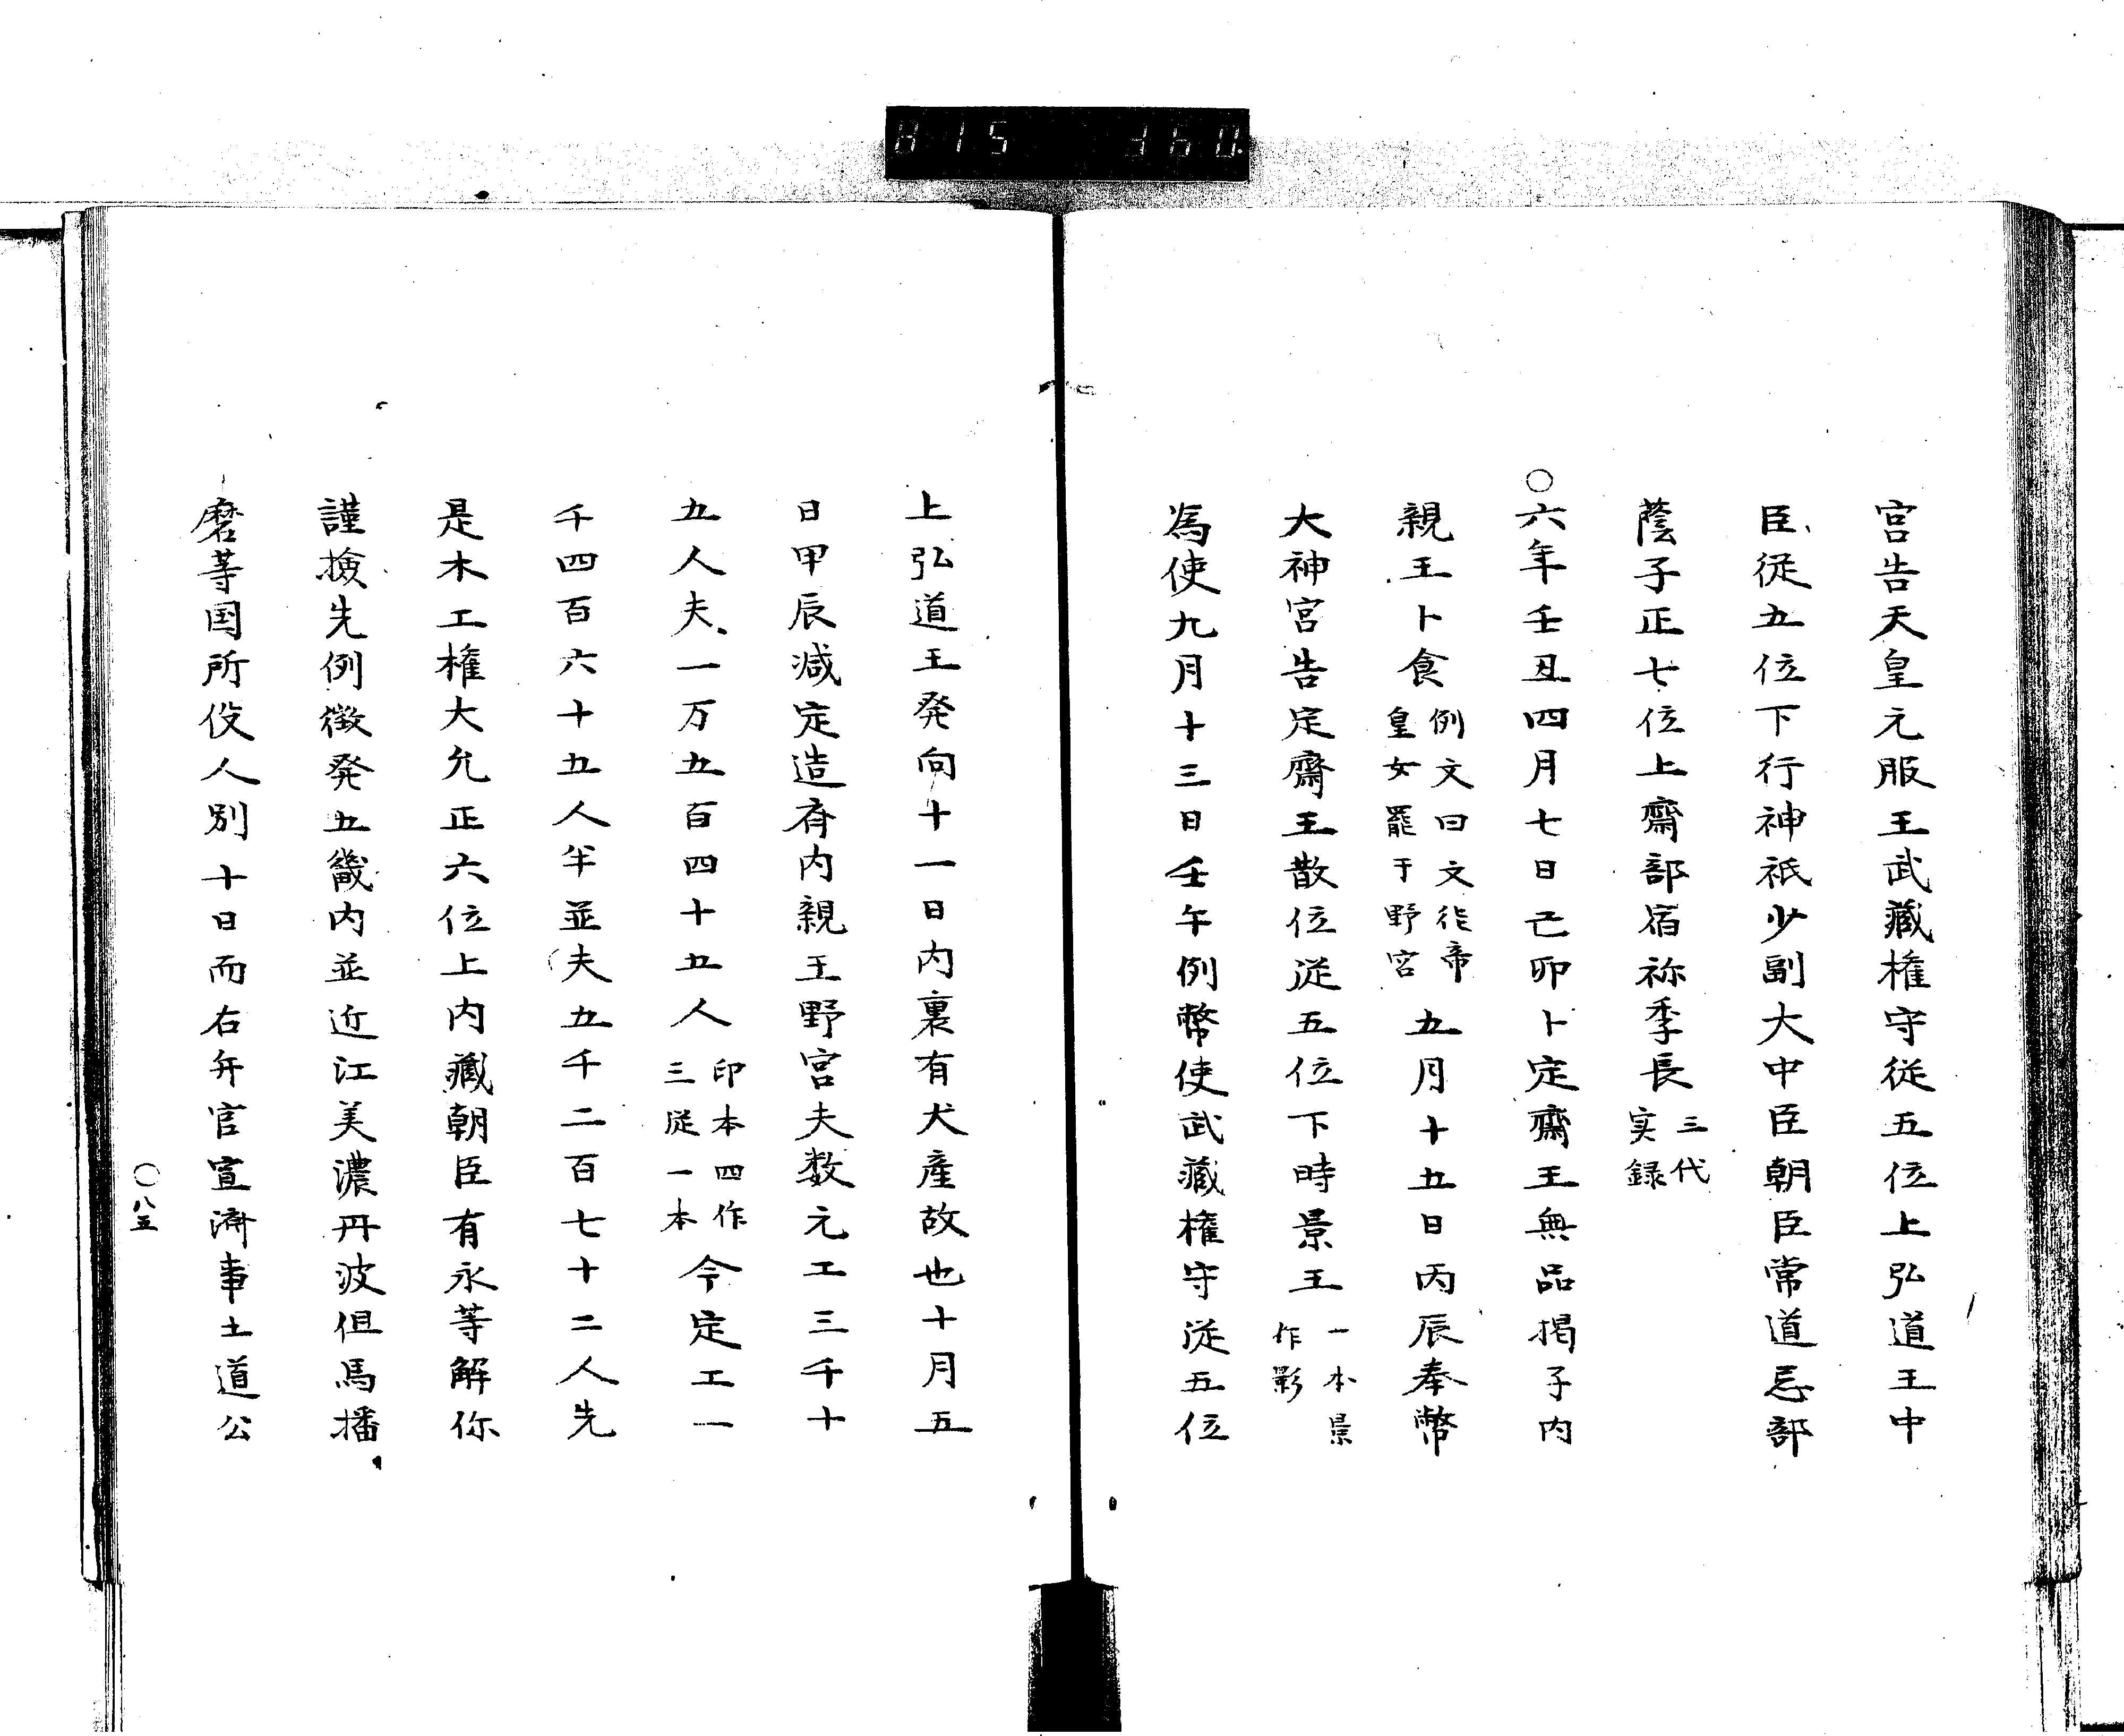 815 360
宮告天皇元服王武藏権守従五位上弘道王中
臣従五位下行神祇少副大中臣朝臣常道忌部
蔭子正七位上齋部宿祢季長三代
実録
○六年壬丑四月七日己卯卜定齋王無品掲子内
親王卜食例文曰文徳帝
皇女罷于野宮五月十五日丙辰奉幣
大神宮告定齋王散位従五位下時景王一本景
作影
為使九月十三日壬午例幣使武藏権守従五位
上弘道王発向十一日内裏有犬産故也十月五
日甲辰減定造斎内親王野宮夫数元工三千十
五人夫一万五百四十五人印本四作
三従一本今定工一
千四百六十五人半並夫五千二百七十二人先
是木工権大允正六位上内藏朝臣有永等解你
謹検先例徴発五畿内並近江美濃丹波但馬播
磨等国所役人別十日而右弁官宣済事土道公
○八五